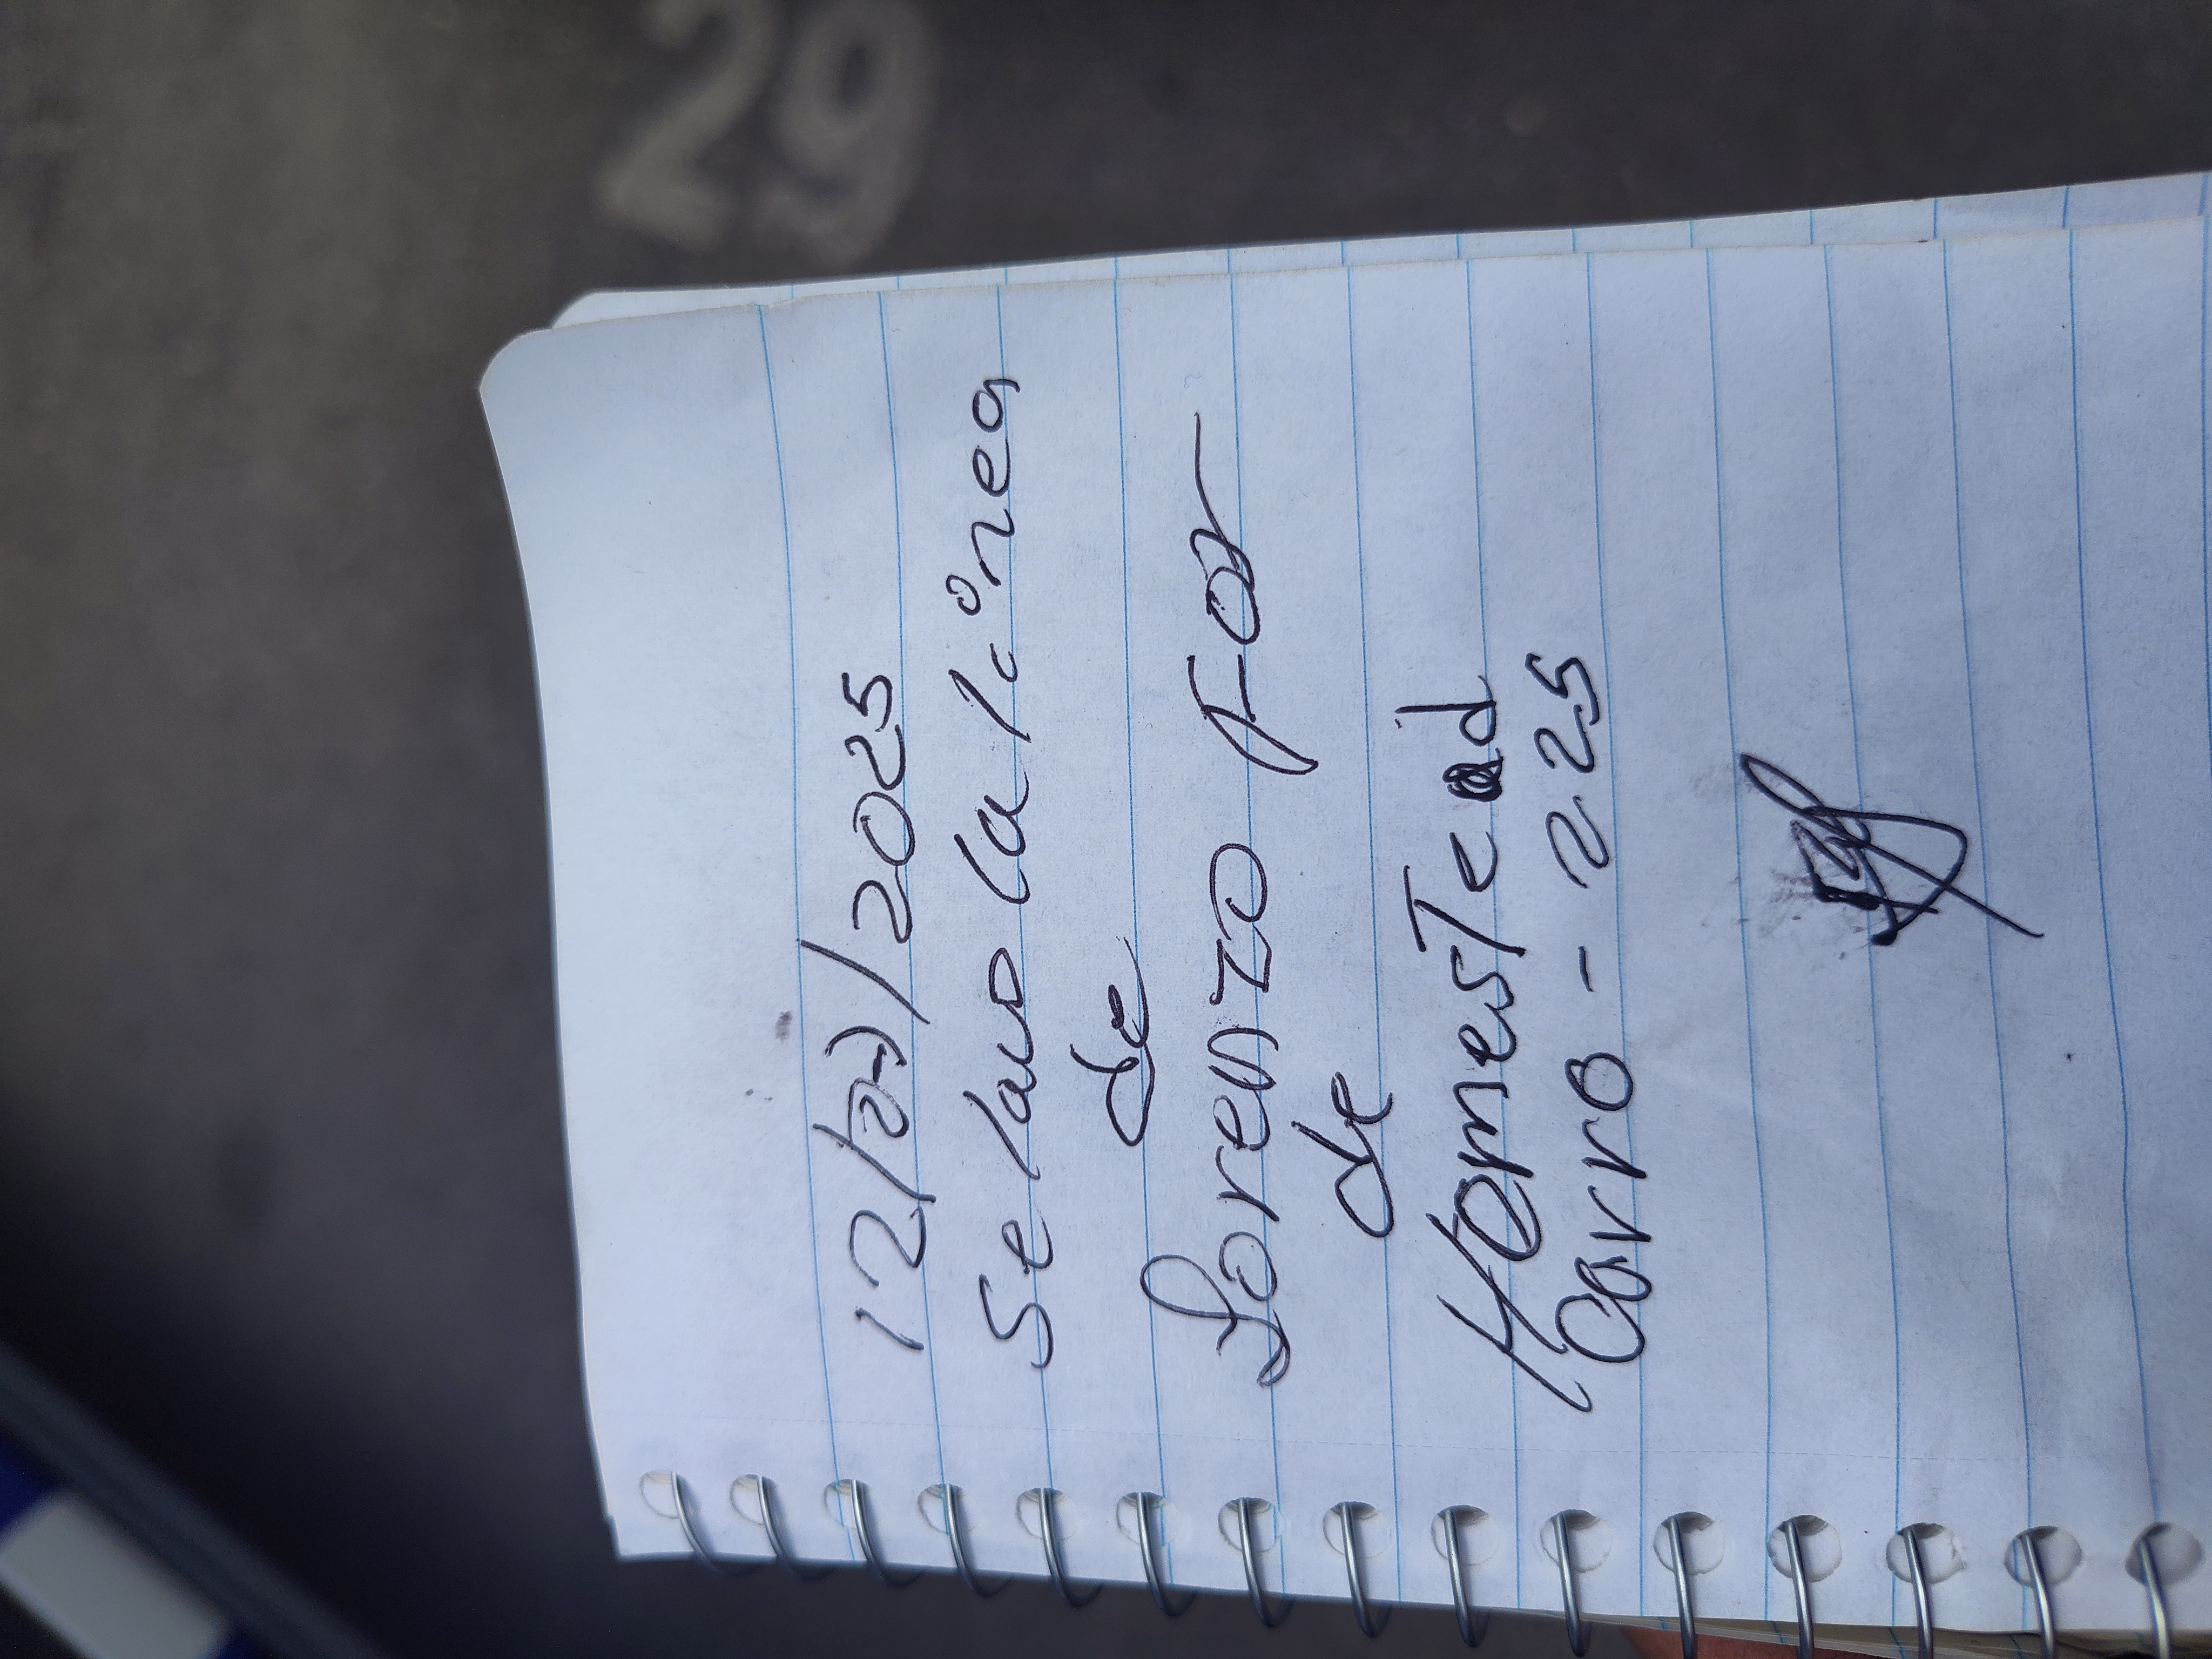 29
12/03/2025
Se lavo la línea
de
Lorenzo For
de
Homestead
Carro - 225